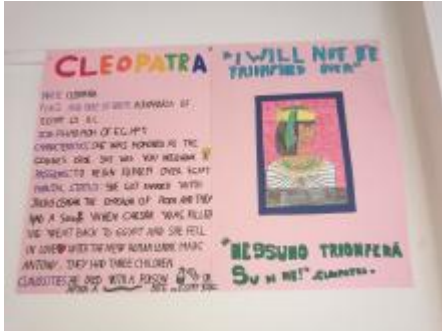 CLEOPATRA
NAME: CLEOPATRA
PLACE AND DATE OF BIRTH: ALEXANDRIA OF
EGYPT 69 B.C.
JOB: PHARAOH OF EGYPT
CHARACTERISTICS: SHE WAS HONORED AS THE
GODDESS ISIDE. SHE WAS VERY
TO REIGN EGYPT
MARITAL STATUS: SHE GOT MARRIED WITH
JULIUS CEASAR THE EMPEROR OF ROME AND THEY
HAD A SON. WHEN CAESAR WAS KILLED
WENT BACK TO EGYPT AND SHE FELL
IN LOVE WITH THE NEW ROMAN LEADER, MARC
ANTONY. THEY HAD THREE CHILDREN
CURIOSITIES: DIED WITH A POISON OR
AFTER A
"I WILL NOT BE
TRIUMPHED OVER"
"NESSUNO TRIONFERÀ
SU DI ME!" CLEOPATRA.